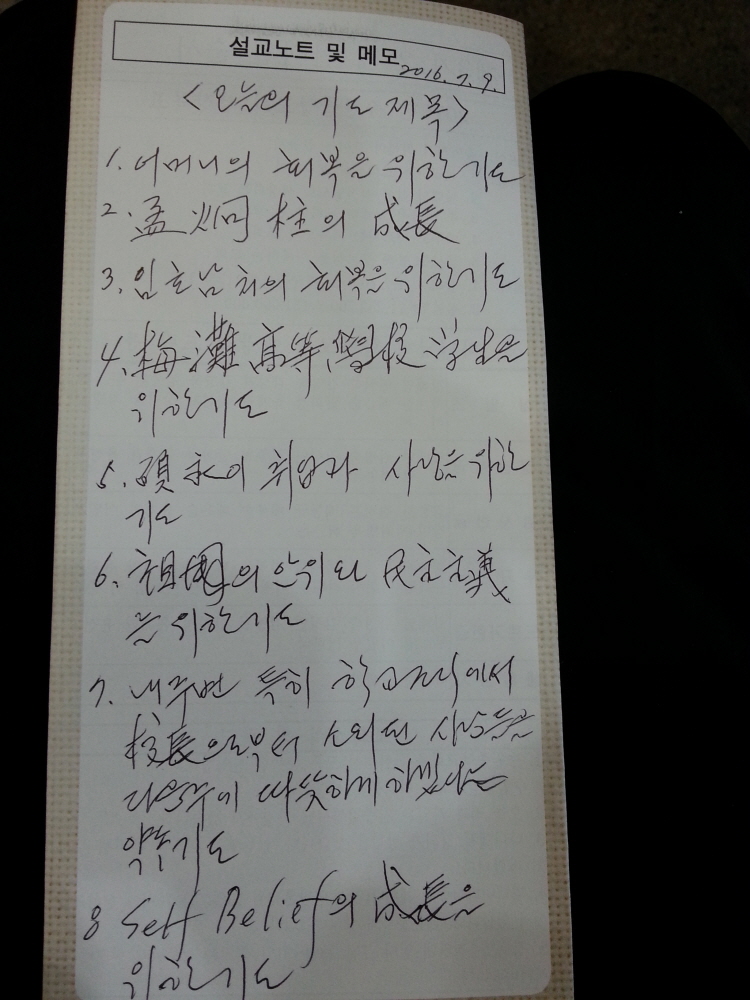 설교노트 및 메모
2016. 7. 9.
<오늘의 기도 제목>
1. 어머니의 회복을 위한기도
2. 孟炯柱의 成長
3. 임호남 처의 회복을 위한기도
4. 梅灘高等學校 학생을
위한기도
5. 碩永이 취업과 사랑을 위한
기도
6. 祖國의 안위와 民主主義
를 위한기도
7. 내주변 특히 학교에서
校長으로부터 소외된 사람들을
따뜻하게
기도
8 Self Belief의 成長을
위한기도